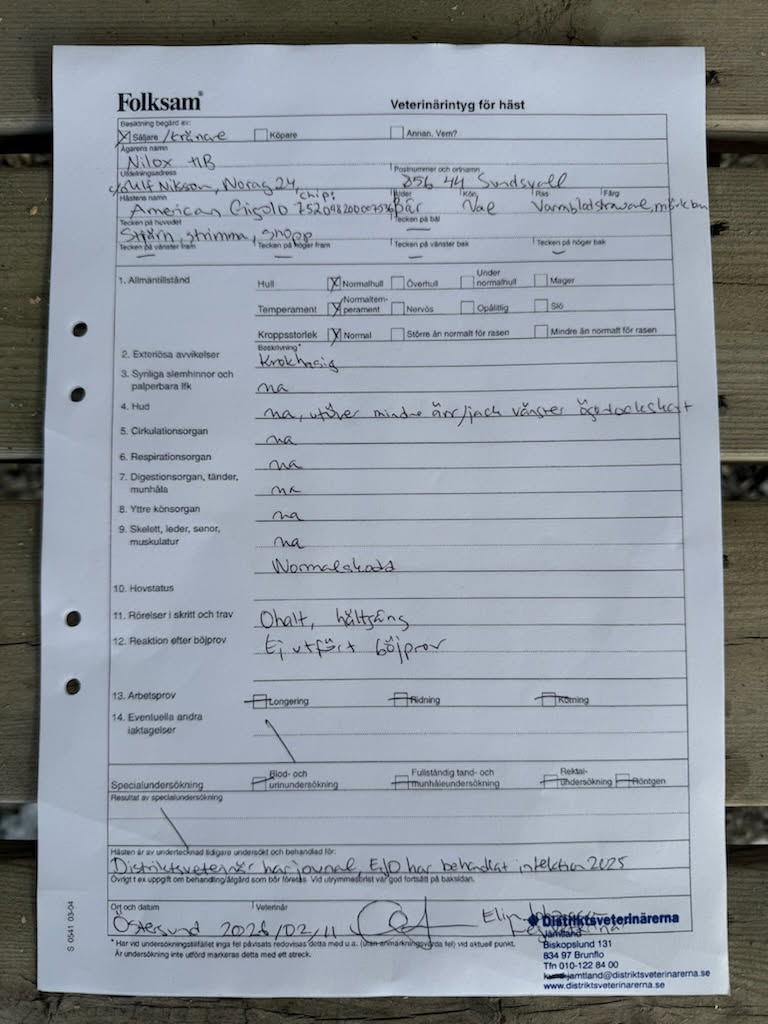 Folksam®
Veterinärintyg för häst
Besiktning begärd av:
Säljare /tränare Köpare Annan. Vem?
Ägarens namn
Nilox HB
Utdelningsadress Postnummer och ortnamn
c/o Ulf Nilsson, Norag 24, 856 44 Sundsvall
Hästens namn chip: Ålder Kön Ras Färg
American Gigolo Val Varmblodstravare, mörkbrun
Tecken på huvudet Tecken på bål
Stjärn, strimma, snopp
Tecken på vänster fram Tecken på höger fram Tecken på vänster bak Tecken på höger bak
1. Allmäntillstånd Hull Normalhull Överhull Under normalhull Mager
Temperament Normaltemperament Nervös Opålitlig Slö
Kroppsstorlek Normal Större än normalt för rasen Mindre än normalt för rasen
Beskrivning*
2. Exteriösa avvikelser Krokhasig
3. Synliga slemhinnor och
palperbara lfk na
4. Hud na, utöver mindre ärr/jack vänster
5. Cirkulationsorgan na
6. Respirationsorgan na
7. Digestionsorgan, tänder,
munhåla na
8. Yttre könsorgan na
9. Skelett, leder, senor,
muskulatur na
Normalskodd
10. Hovstatus
11. Rörelser i skritt och trav Ohalt,
12. Reaktion efter böjprov Ej utfört böjprov
13. Arbetsprov Longering Ridning Körning
14. Eventuella andra
iakttagelser
Specialundersökning Blod- och urinundersökning Fullständig tand- och munhåleundersökning Rektalundersökning Röntgen
Resultat av specialundersökning
Hästen är av undertecknad tidigare undersökt och behandlad för:
Distriktsveterinär har journal, EJO har behandlat infektion 2025
Övrigt t ex uppgift om behandling/åtgärd som bör företas. Vid utrymmesbrist var god fortsätt på baksidan.
Ort och datum Veterinär
Östersund 2026/02/11 Elin
* Har vid undersökningstillfället inga fel påvisats redovisas detta med u.a. (utan anmärkningsvärda fel) vid aktuell punkt.
Är undersökning inte utförd markeras detta med ett streck.
Distriktsveterinärerna
Jämtland
Biskopslund 131
834 97 Brunflo
Tfn 010-122 84 00
jamtland@distriktsveterinarerna.se
www.distriktsveterinarerna.se
S 0541 03-04